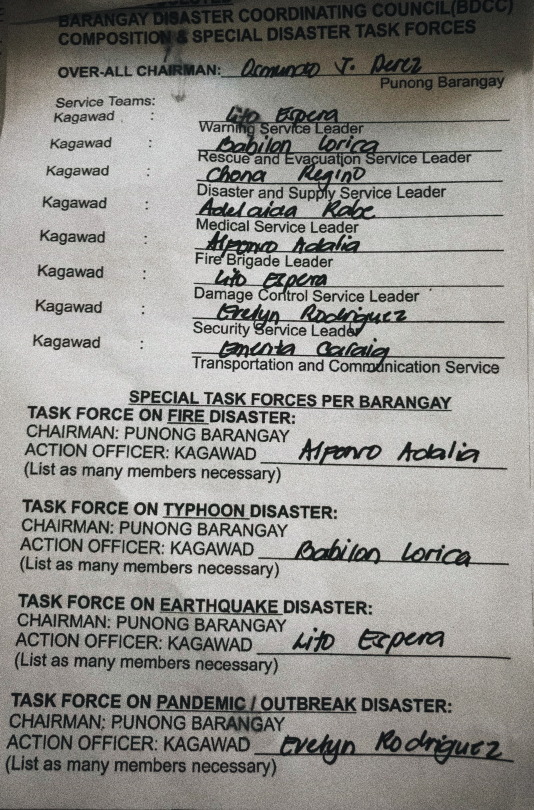 BARANGAY DISASTER COORDINATING COUNCIL(BDCC)
COMPOSITION & SPECIAL DISASTER TASK FORCES
OVER-ALL CHAIRMAN: Osmundo J. Perez
Punong Barangay
Service Teams:
Kagawad : Lito Espera
Warning Service Leader
Kagawad : Babilon Lorica
Rescue and Evacuation Service Leader
Kagawad : Chona Regino
Disaster and Supply Service Leader
Kagawad : Adelaida Rabe
Medical Service Leader
Kagawad : Alfonso Adalia
Fire Brigade Leader
Kagawad : Lito Espera
Damage Control Service Leader
Kagawad : Evelyn Rodriguez
Security Service Leader
Kagawad : Emerita Caraig
Transportation and Communication Service
SPECIAL TASK FORCES PER BARANGAY
TASK FORCE ON FIRE DISASTER:
CHAIRMAN: PUNONG BARANGAY
ACTION OFFICER: KAGAWAD Alfonso Adalia
(List as many members necessary)
TASK FORCE ON TYPHOON DISASTER:
CHAIRMAN: PUNONG BARANGAY
ACTION OFFICER: KAGAWAD Babilon Lorica
(List as many members necessary)
TASK FORCE ON EARTHQUAKE DISASTER:
CHAIRMAN: PUNONG BARANGAY
ACTION OFFICER: KAGAWAD Lito Espera
(List as many members necessary)
TASK FORCE ON PANDEMIC / OUTBREAK DISASTER:
CHAIRMAN: PUNONG BARANGAY
ACTION OFFICER: KAGAWAD Evelyn Rodriguez
(List as many members necessary)